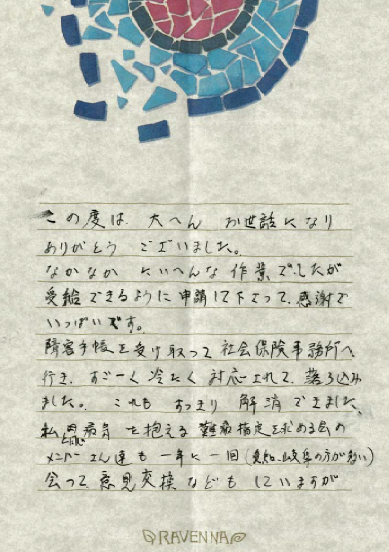 この度は、大へん お世話になり
ありがとう ございました。
なかなか たいへんな 作業でしたが
受給できるように 申請して下さって、感謝で
いっぱいです。
障害手帳を受け取って 社会保険事務所へ
行き、すごーく 冷たく 対応されて、落ち込み
ました。 これも すっきり 解消できました。
私と同じ病気を抱える 難病指定を求める会の
メンバーさん達も 一年に一回(愛知、岐阜の方が多い)
会って、意見交換なども していますが
RAVENNA